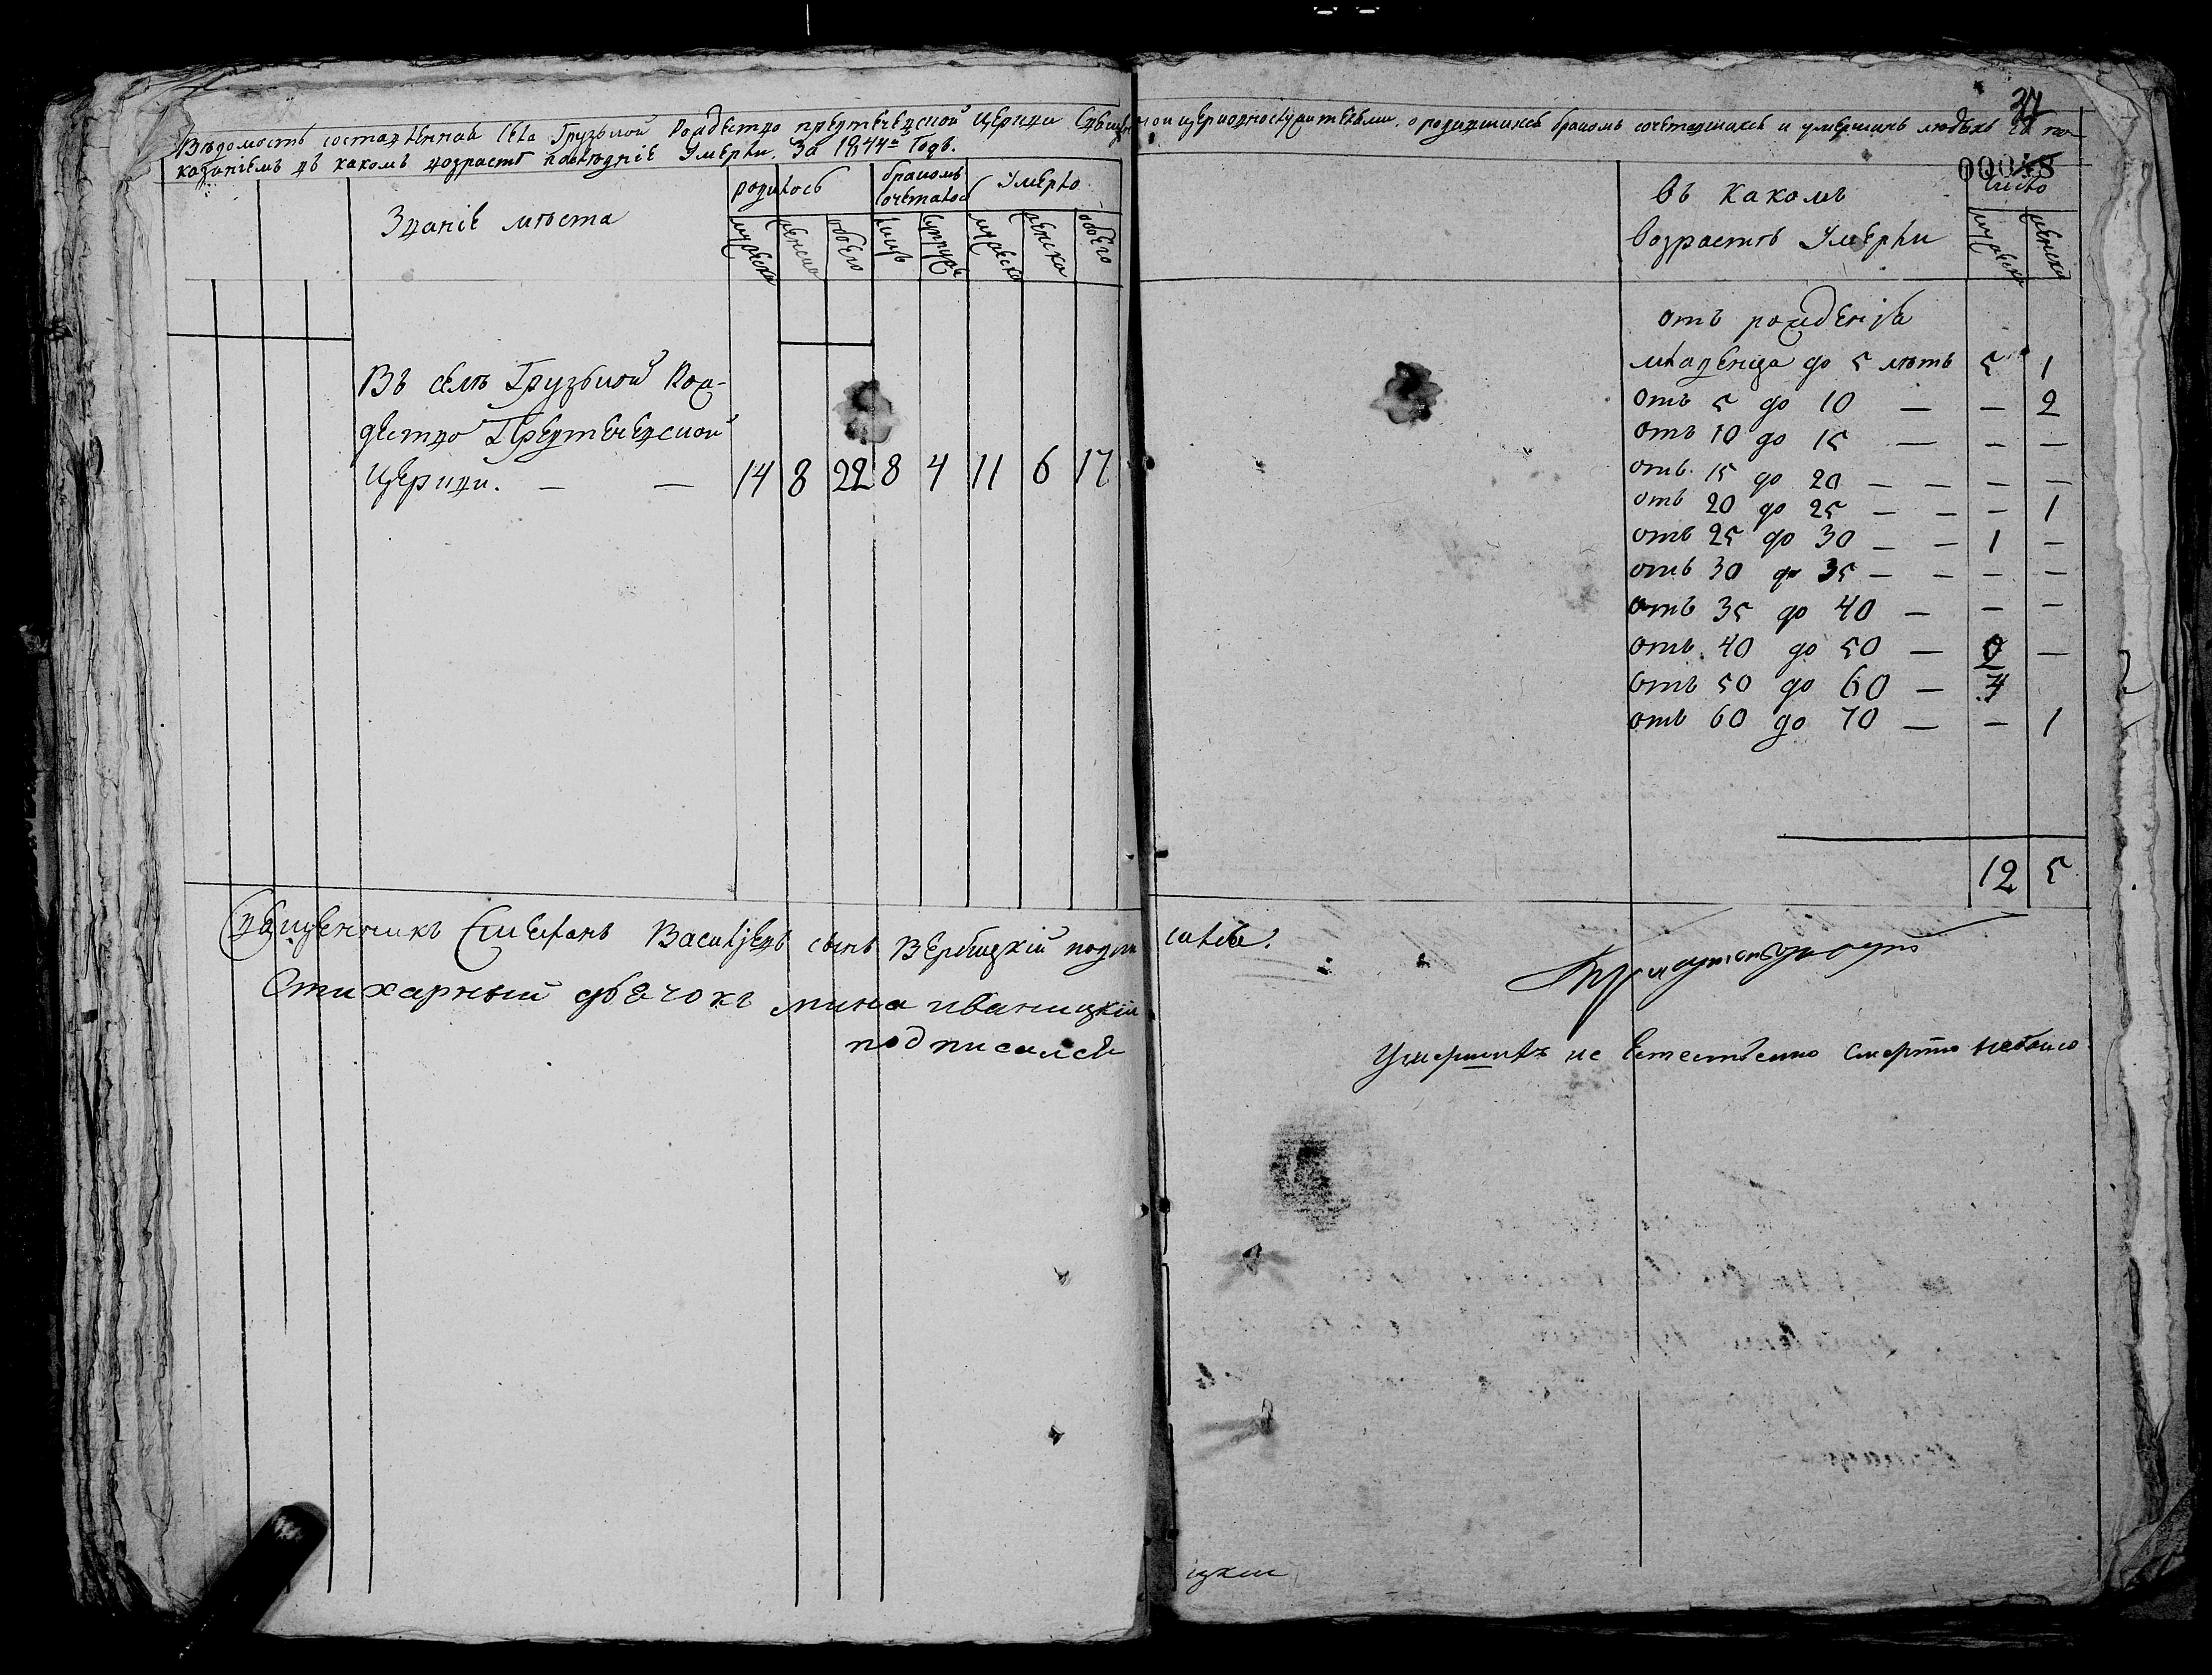 Вѣдомость составленная села Грузькой Рождество предтечевской церкви священно и церковнослужительми, о родившихся бракомъ сочетавшихся и умершихъ людехъ съ по-
казаніемъ въ какомъ возрастѣ послѣдніе умерли. За 1844й Годъ.
00048
Званіе мѣста
родилось
бракомъ сочеталось
Умерло
мужеска
женска
обоего
лицъ
супруж
мужеска
женска
обоего
въ какомъ
возрастѣ Умерли
Число
мужеска
женска
Въ селѣ Грузькой Рож-
дество Предтечевской
Церкви. — — 14 8 22 8 4 11 6 17
отъ рожденія
младенца до 5 лѣтъ 5 1
отъ 5 до 10 — — 2
отъ 10 до 15 — — —
отъ 15 до 20 — — — —
отъ 20 до 25 — — — 1
отъ 25 до 30 — — 1 —
отъ 30 до 35 — — — —
отъ 35 до 40 — — —
отъ 40 до 50 — —
отъ 50 до 60 —
отъ 60 до 70 — — 1
12 5
Священникъ Стефанъ Васильевъ сынъ Вербицкій подписался.
Стихарный дьячокъ мина иваницкій
подписался
Умершихъ не Естественно смертію небыло
цкій